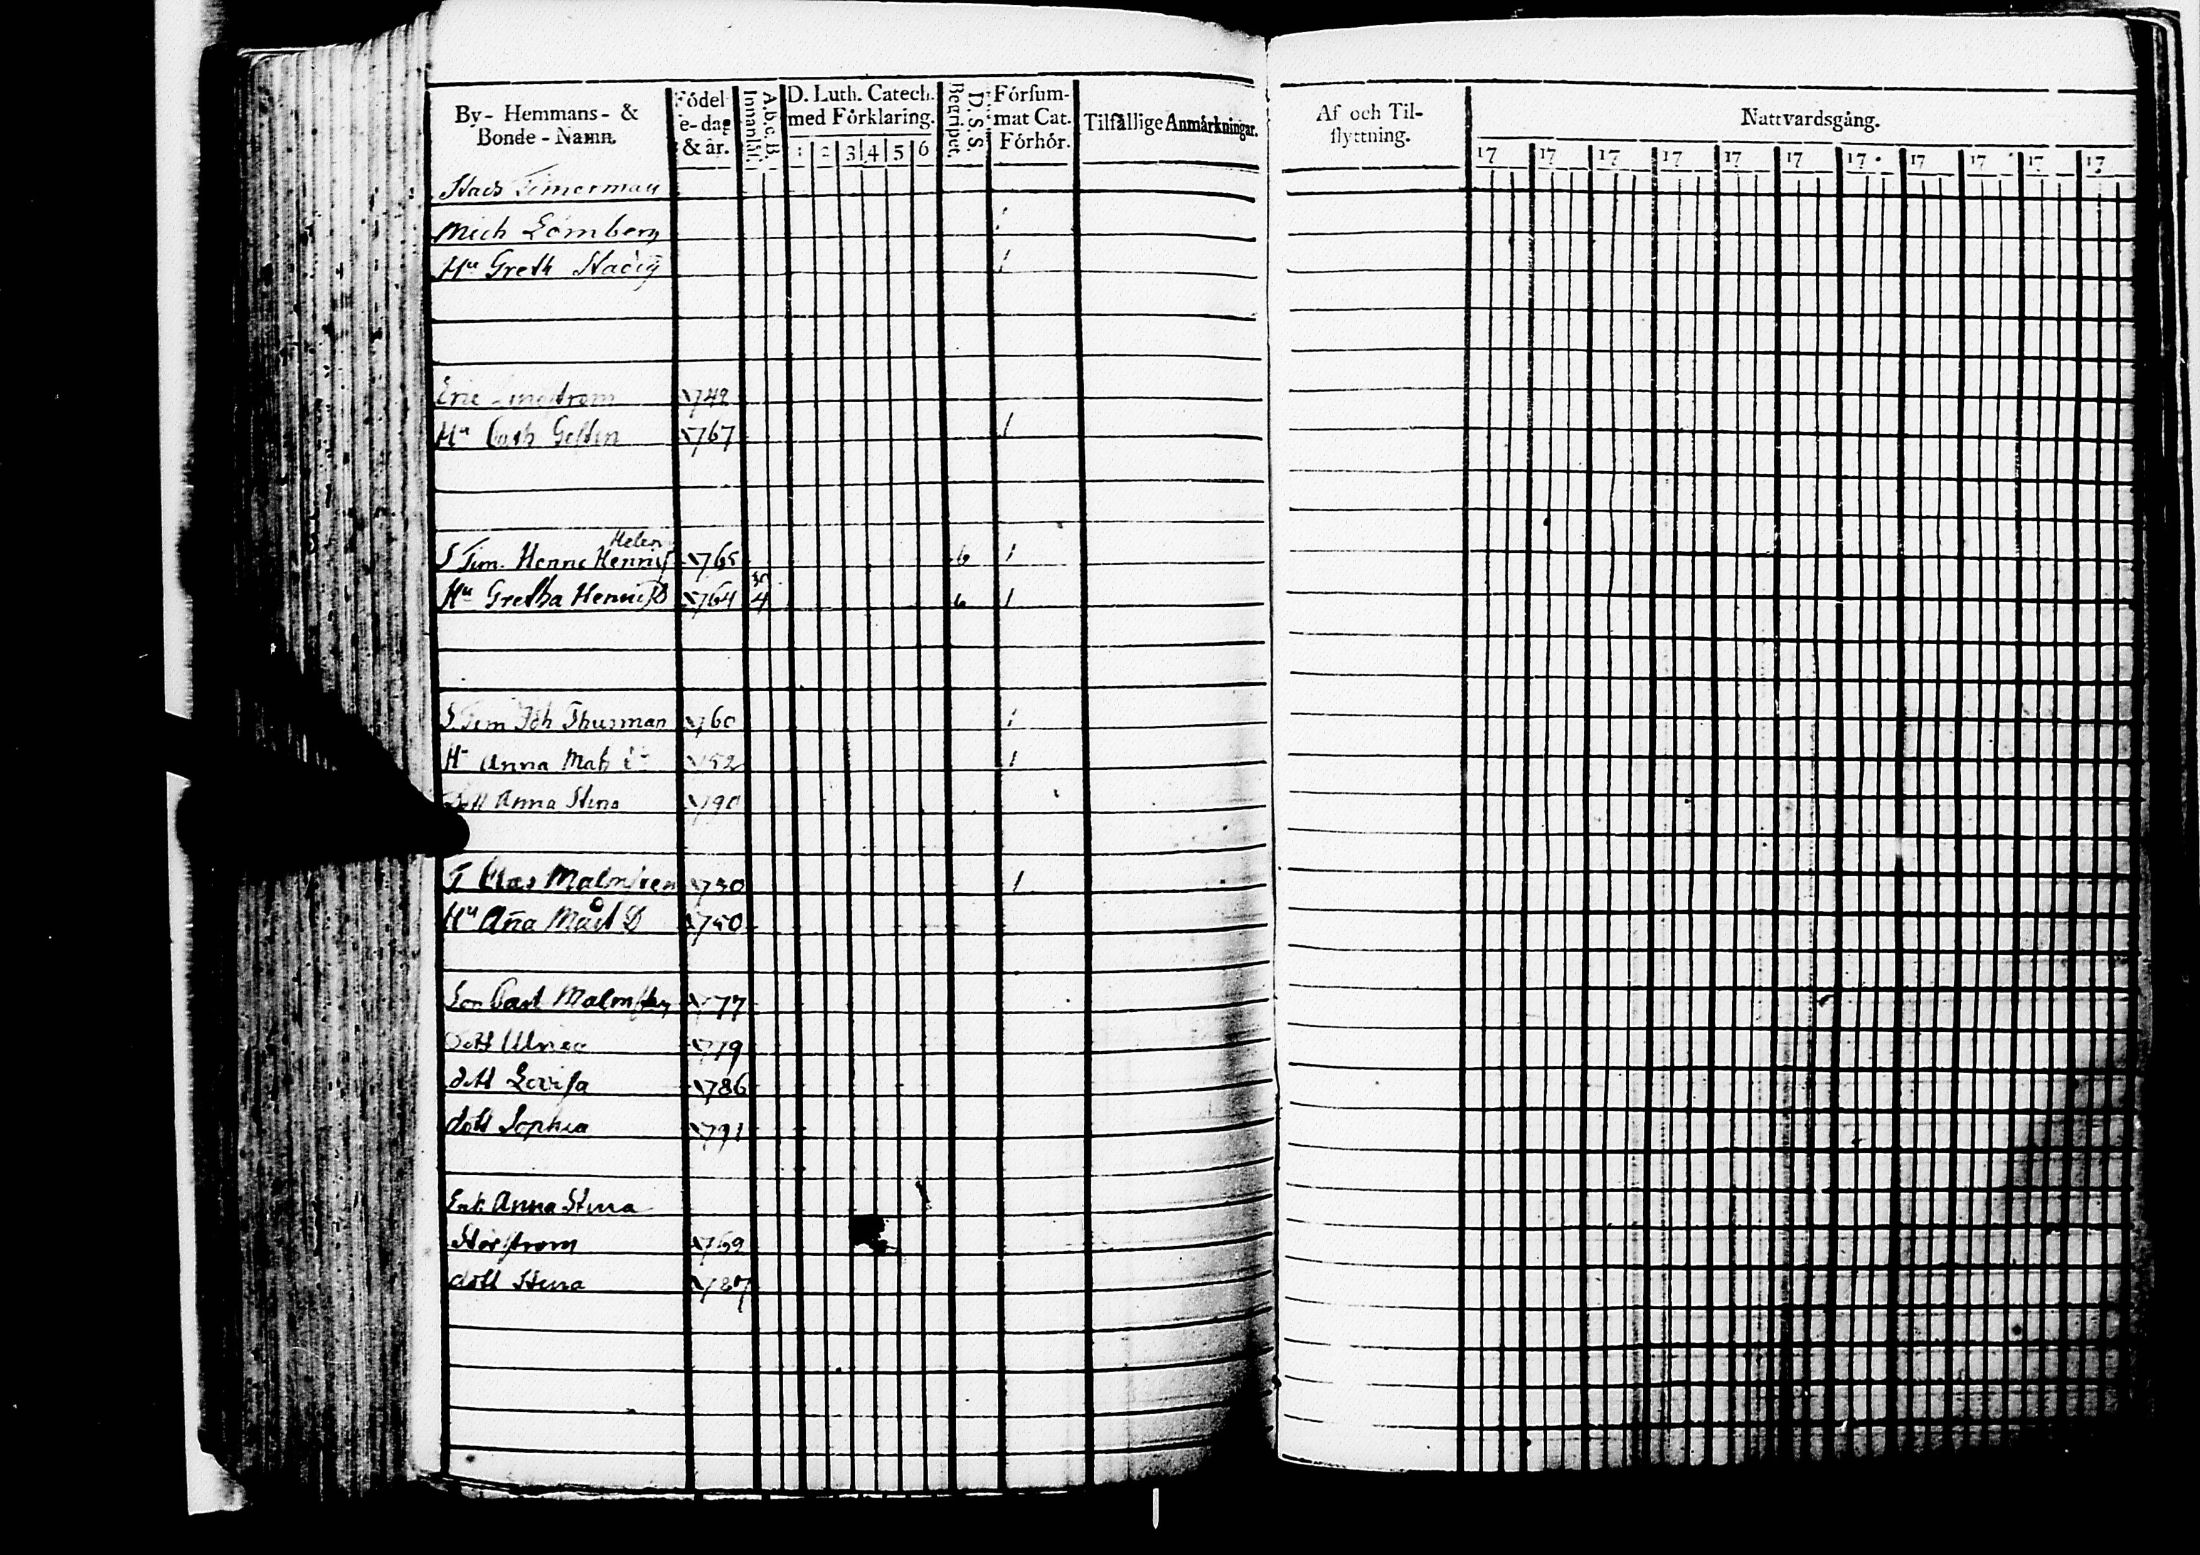 By- Hemmans- & Bonde-Namn.
Födel e-dag & år.
A.b.c.B. Innanläs.
D. Luth. Catech. med Förklaring.
1 2 3 4 5 6
D. S. S. Begripet.
Försum-mat Cat. Förhör.
Tilfällige Anmärkningar.
Af och Til-flyttning.
Nattvardsgång.
17 17 17 17 17 17 17 17 17 17 17
Stads Timerman
Mich Lömberg
Hu Greth 1
Eric 1742
Hu Cath 1767 1
Helsn
S Tim. Henric 1765 6 1
Hu Gretha 1764 4 6 1
S. Tim Joh Thurman 1760 1
Hu Anna Mats 1752 1
dott Anna Stina 1790
T Clas Malmsten 1750 1
Hu Aña D 1750
Son Carl Malmsten 1777
dott Ulrica 1779
dott Lovisa 1786
dott Sophia 1791
Enk: Anna Stina
1769
dott Stina 1787